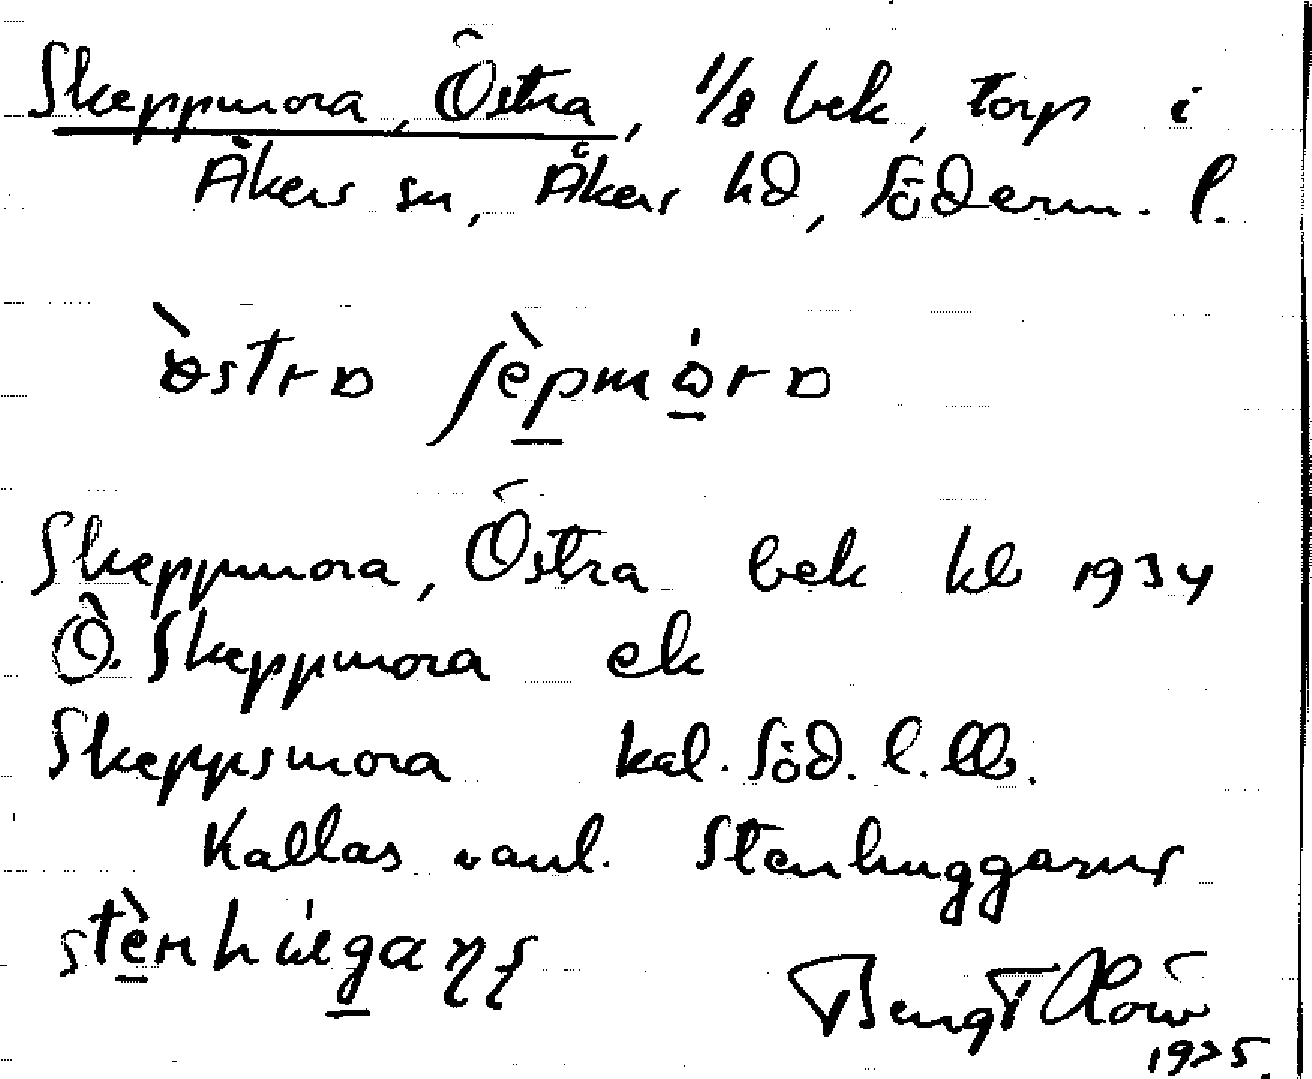 Skeppmora, Östra, 1/8 bek, torp i
Åkers sn, Åkers hd, Söderm. l.
Skeppmora, Östra bek kb 1934
Ö. Skeppmora ek
Skeppsmora kal. Söd. l. lb.
Kallas vanl. Stenhuggarns
Bengt
1935.